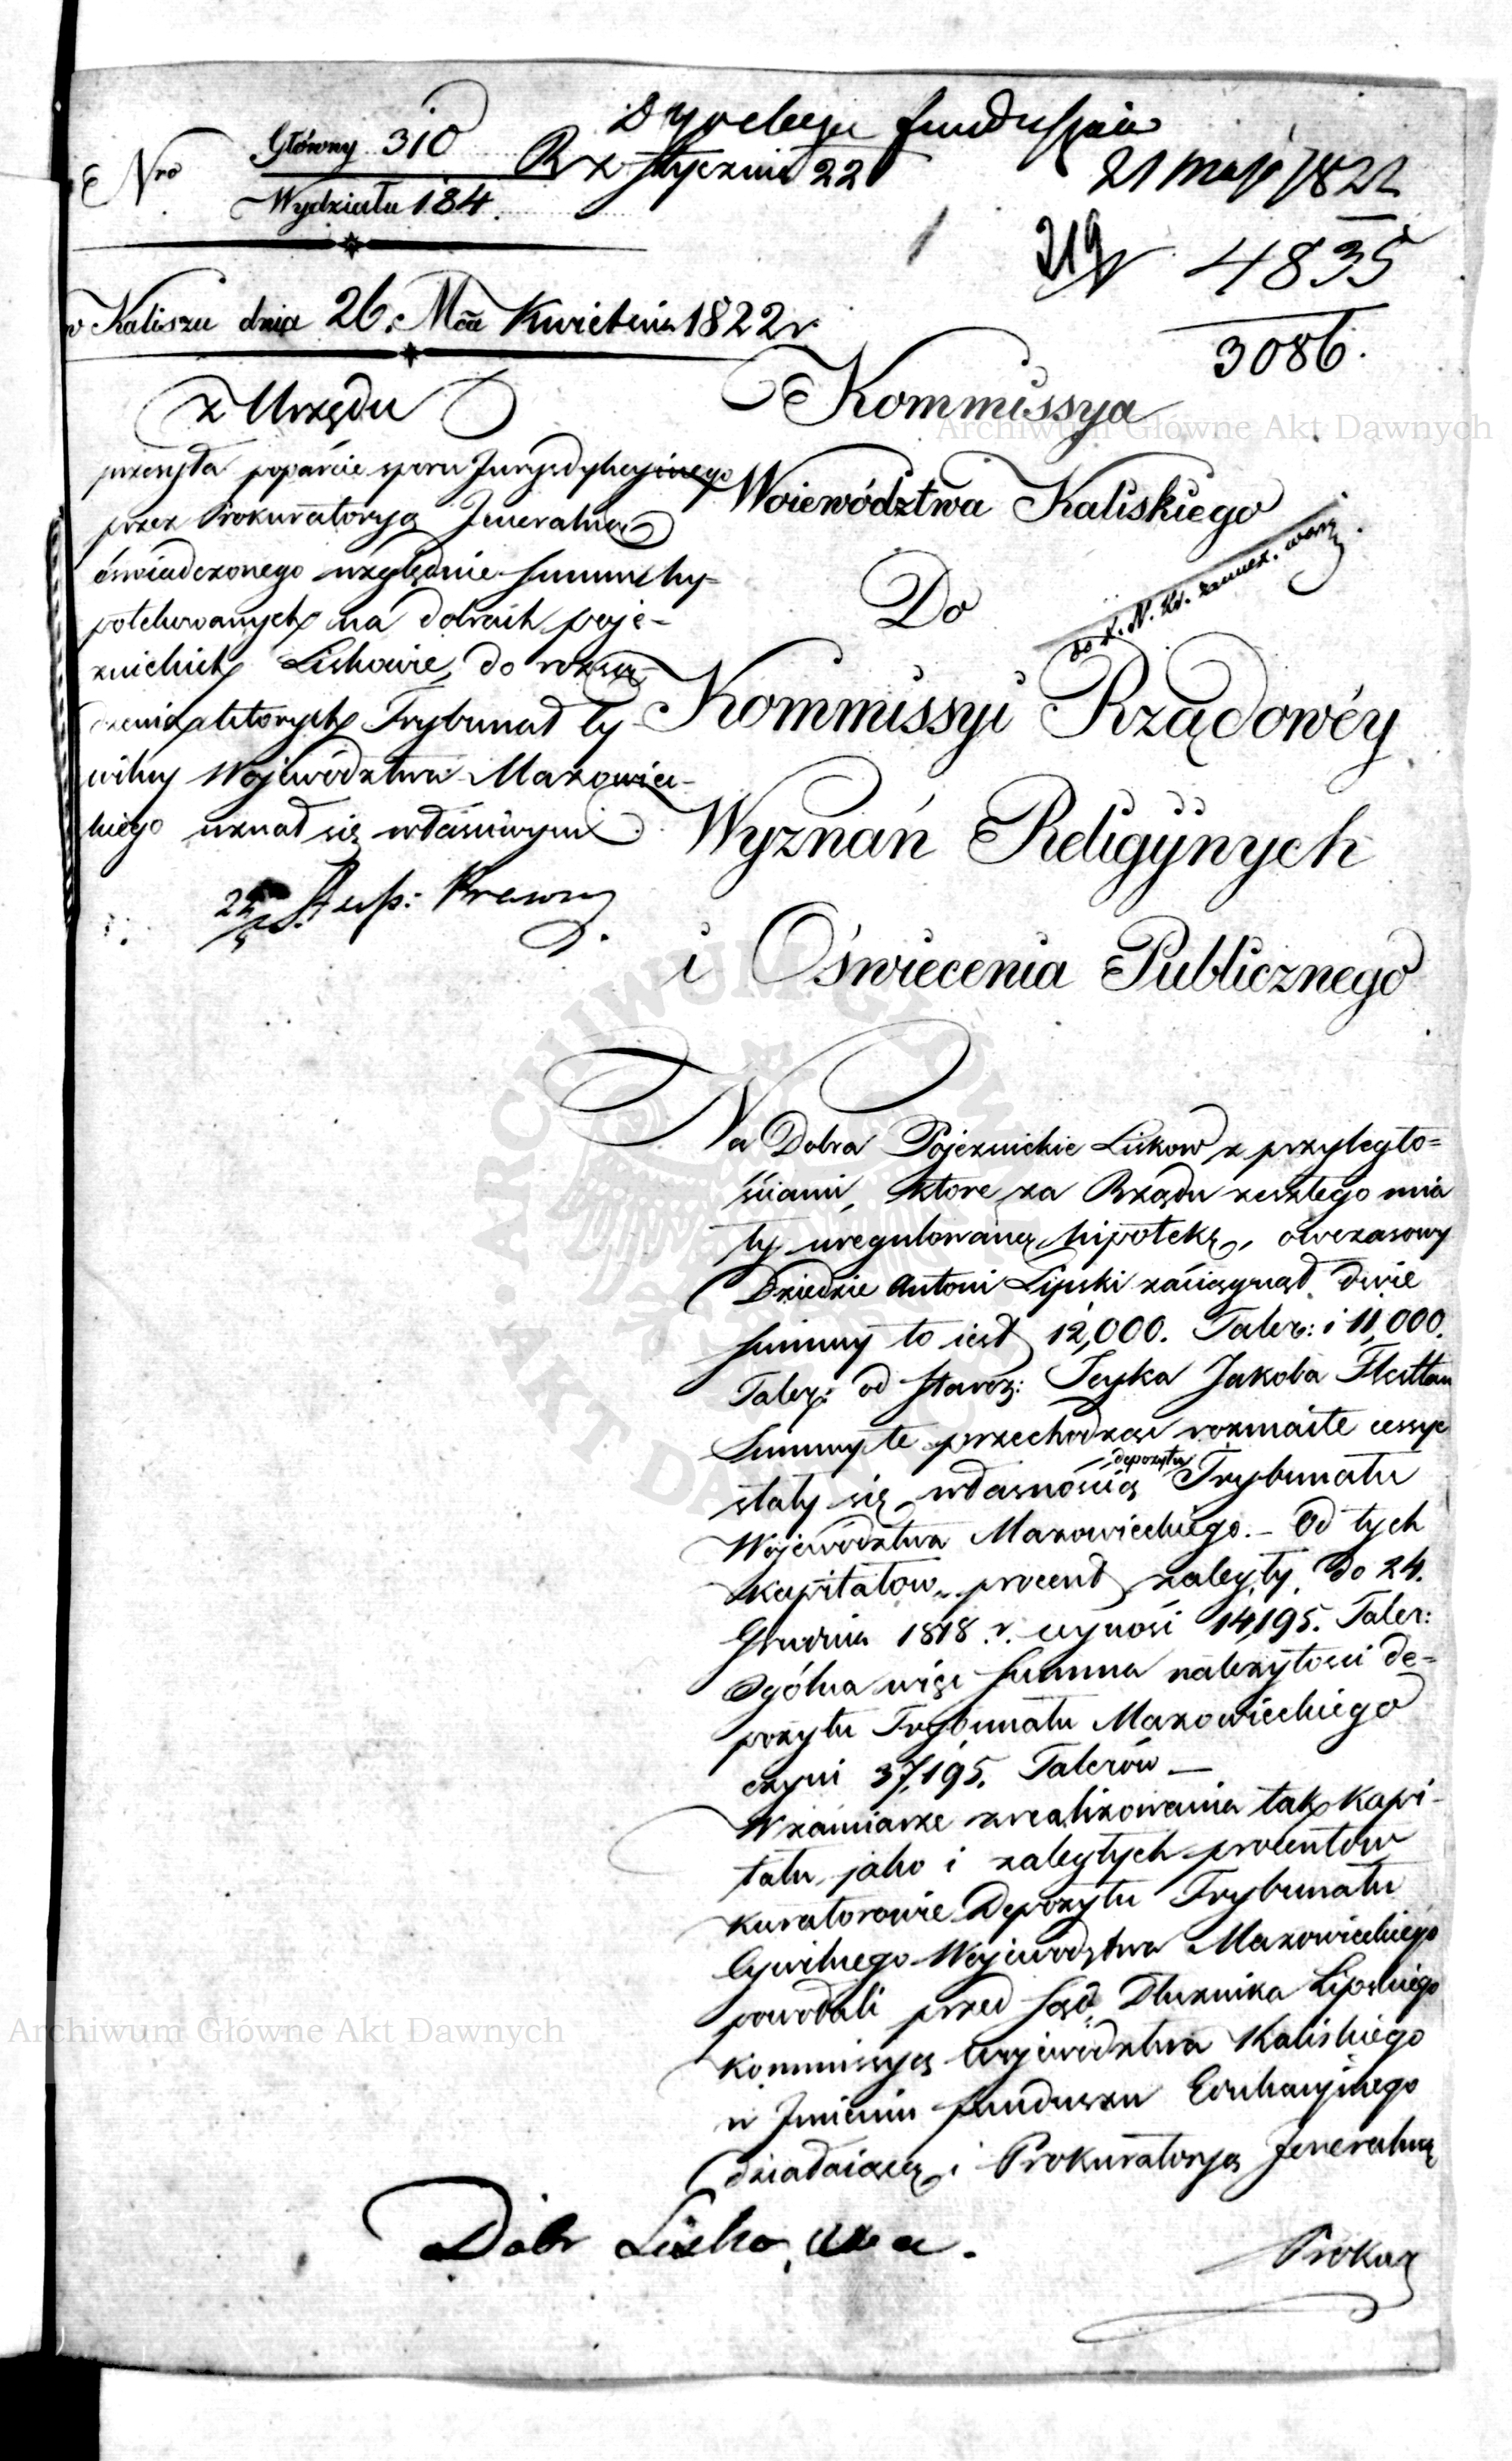 Dyrekcyi funduszów
Nro Główny 310
Wydziału 184.
R x stycznia 22
21 maja 1822
219
4835
3086.
w Kaliszu dnia 26. Mca Kwietnia 1822 r
Z Urzędu
przesyła poparcie sporu Jurysdykcyjnego
przez Prokuratoryą Jeneralną
oświadczonego względnie summ hy-
potekowanych na dobrach poje-
zuickich Liskowie, do rozsą-
dzenia których Trybunał Cy-
wilny Województwa Mazowiec-
kiego uznał się właściwym.
Kommissya
Woiewództwa Kaliskiego
Do
Kommissyi Rządowéy
Wyznań Religijnych
i Oświecenia Publicznego
Na Dobra Pojezuickie Liskow z przyległo=
ściami, ktore za Rządu zeszłego mia
ły uregulowaną hipotekę, owczasowy
Dziedzic Antoni Lipski zaciągnął dwie
summy to iest 12,000. Taler: i 11,000.
Taler: od Staroz: Jakoba
Summy te przechodząc rozmaite cessye
stały się własnością depozytu Trybunału
Województwa Mazowieckiego. – Od tych
kapitałow procent zaległy do 24.
Grudnia 1818 r. wynosi 14,195. Taler:
Ogólna więc summa należytosci de=
pozytu Trybunału Mazowieckiego
czyni 37,195. Talerów —
W zamiarze zrealizowania tak kapi-
tału jako i zaległych procentow
kuratorowie Depozytu Trybunału
Cywilnego Województwa Mazowieckiego
powołali przed Sąd Dłużnika Lipskiego
kommissyą Województwa Kaliskiego
w Imieniu funduszu Edukacyjnego
działaiącą i Prokuratoryą Jeneralną
Dobr Liskowa.
Prokur
Archiwum Główne Akt Dawnych
Archiwum Główne Akt Dawnych
ARCHIWUM GŁÓWNE AKT DAWNYCH